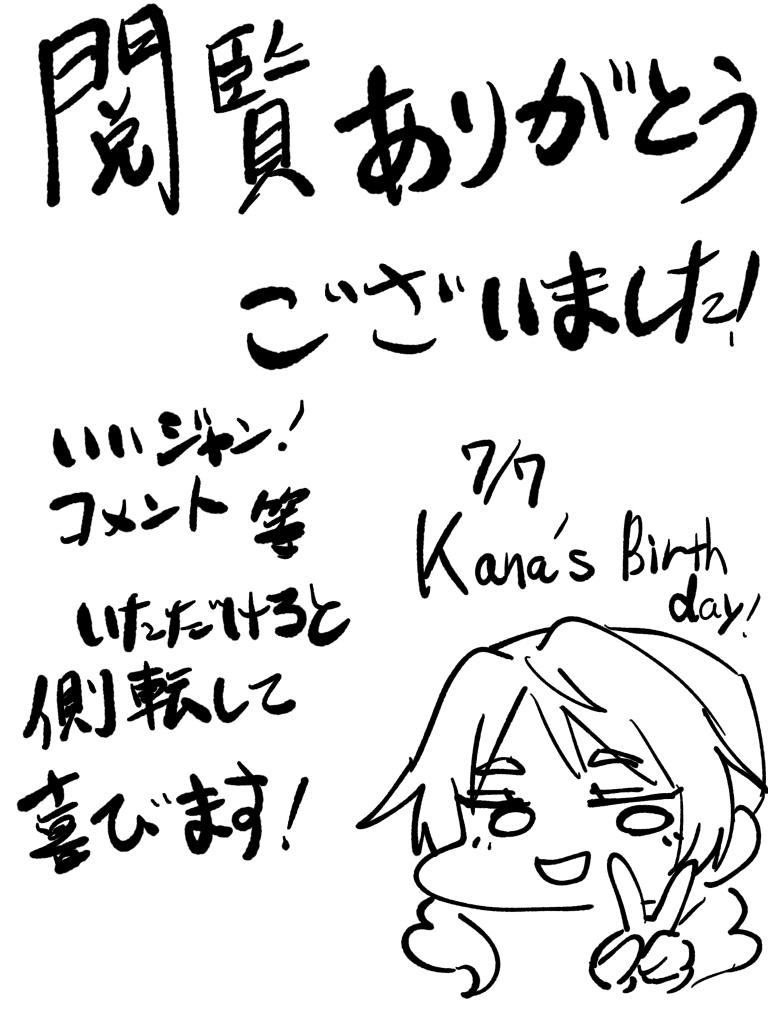 閲覧ありがとう
ございました!
いいジャン!
コメント等
いただけると
側転して
喜びます!
7/7
Kana's Birth
day!